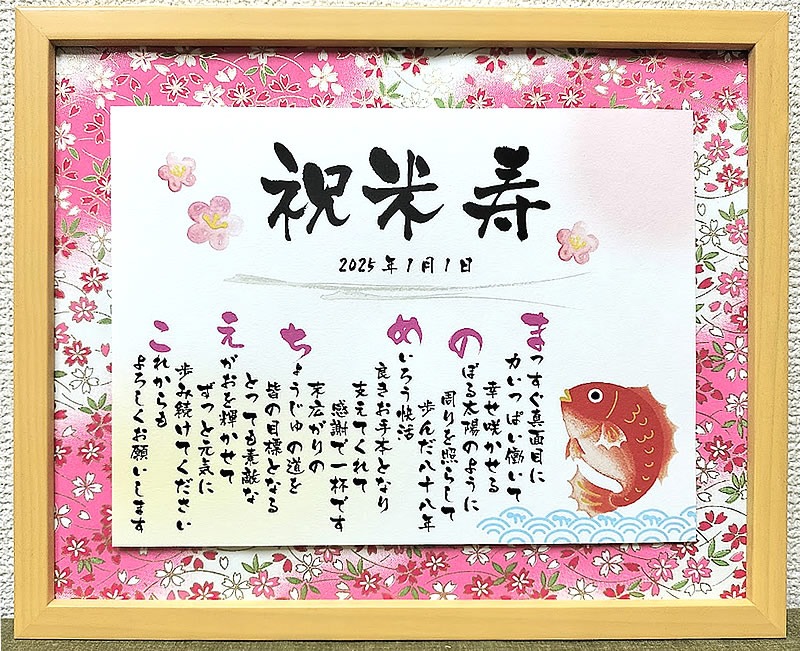 祝米寿
2025年1月1日
まっすぐ真面目に
力いっぱい働いて
幸せ咲かせる
のぼる太陽のように
周りを照らして
歩んだ八十八年
めいろう快活
良きお手本となり
支えてくれて
感謝で一杯です
末広がりの
ちょうじゅの道を
皆の目標となる
とっても素敵な
えがおを輝かせて
ずっと元気に
歩み続けてください
これからも
よろしくお願いします